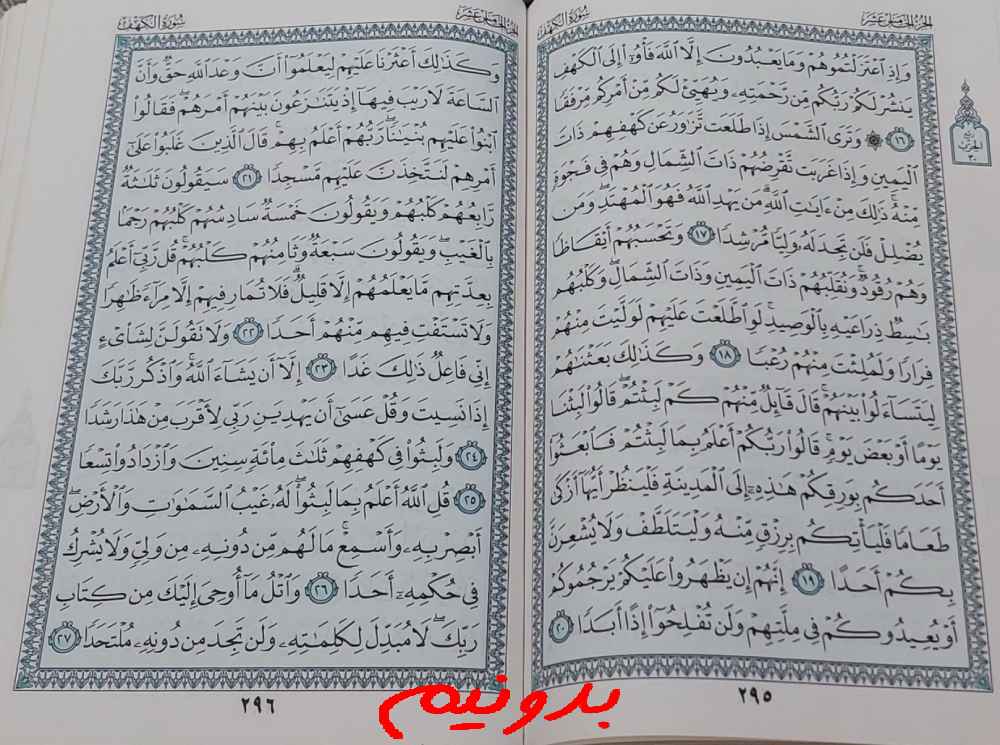 الجزء الخامس عشر
سورة الكهف
وَإِذِ ٱعۡتَزَلۡتُمُوهُمۡ وَمَا يَعۡبُدُونَ إِلَّا ٱللَّهَ فَأۡوُۥٓاْ إِلَى ٱلۡكَهۡفِ
يَنشُرۡ لَكُمۡ رَبُّكُم مِّن رَّحۡمَتِهِۦ وَيُهَيِّئۡ لَكُم مِّنۡ أَمۡرِكُم مِّرۡفَقٗا
١٦ ۞ وَتَرَى ٱلشَّمۡسَ إِذَا طَلَعَت تَّزَٰوَرُ عَن كَهۡفِهِمۡ ذَاتَ
ٱلۡيَمِينِ وَإِذَا غَرَبَت تَّقۡرِضُهُمۡ ذَاتَ ٱلشِّمَالِ وَهُمۡ فِي فَجۡوَةٖ
مِّنۡهُۚ ذَٰلِكَ مِنۡ ءَايَٰتِ ٱللَّهِۗ مَن يَهۡدِ ٱللَّهُ فَهُوَ ٱلۡمُهۡتَدِۖ وَمَن
يُضۡلِلۡ فَلَن تَجِدَ لَهُۥ وَلِيّٗا مُّرۡشِدٗا ١٧ وَتَحۡسَبُهُمۡ أَيۡقَاظٗا
وَهُمۡ رُقُودٞۚ وَنُقَلِّبُهُمۡ ذَاتَ ٱلۡيَمِينِ وَذَاتَ ٱلشِّمَالِۖ وَكَلۡبُهُم
بَٰسِطٞ ذِرَاعَيۡهِ بِٱلۡوَصِيدِۚ لَوِ ٱطَّلَعۡتَ عَلَيۡهِمۡ لَوَلَّيۡتَ مِنۡهُمۡ
فِرَارٗا وَلَمُلِئۡتَ مِنۡهُمۡ رُعۡبٗا ١٨ وَكَذَٰلِكَ بَعَثۡنَٰهُمۡ
لِيَتَسَآءَلُواْ بَيۡنَهُمۡۚ قَالَ قَآئِلٞ مِّنۡهُمۡ كَمۡ لَبِثۡتُمۡۖ قَالُواْ لَبِثۡنَا
يَوۡمًا أَوۡ بَعۡضَ يَوۡمٖۚ قَالُواْ رَبُّكُمۡ أَعۡلَمُ بِمَا لَبِثۡتُمۡ فَٱبۡعَثُوٓاْ
أَحَدَكُم بِوَرِقِكُمۡ هَٰذِهِۦٓ إِلَى ٱلۡمَدِينَةِ فَلۡيَنظُرۡ أَيُّهَآ أَزۡكَىٰ
طَعَامٗا فَلۡيَأۡتِكُم بِرِزۡقٖ مِّنۡهُ وَلۡيَتَلَطَّفۡ وَلَا يُشۡعِرَنَّ
بِكُمۡ أَحَدًا ١٩ إِنَّهُمۡ إِن يَظۡهَرُواْ عَلَيۡكُمۡ يَرۡجُمُوكُمۡ
أَوۡ يُعِيدُوكُمۡ فِي مِلَّتِهِمۡ وَلَن تُفۡلِحُوٓاْ إِذًا أَبَدٗا ٢٠
٢٩٥
الجزء الخامس عشر
سورة الكهف
وَكَذَٰلِكَ أَعۡثَرۡنَا عَلَيۡهِمۡ لِيَعۡلَمُوٓاْ أَنَّ وَعۡدَ ٱللَّهِ حَقّٞ وَأَنَّ
ٱلسَّاعَةَ لَا رَيۡبَ فِيهَآ إِذۡ يَتَنَٰزَعُونَ بَيۡنَهُمۡ أَمۡرَهُمۡۖ فَقَالُواْ
ٱبۡنُواْ عَلَيۡهِم بُنۡيَٰنٗاۖ رَّبُّهُمۡ أَعۡلَمُ بِهِمۡۚ قَالَ ٱلَّذِينَ غَلَبُواْ عَلَىٰٓ
أَمۡرِهِمۡ لَنَتَّخِذَنَّ عَلَيۡهِم مَّسۡجِدٗا ٢١ سَيَقُولُونَ ثَلَٰثَةٞ
رَّابِعُهُمۡ كَلۡبُهُمۡ وَيَقُولُونَ خَمۡسَةٞ سَادِسُهُمۡ كَلۡبُهُمۡ رَجۡمَۢا
بِٱلۡغَيۡبِۖ وَيَقُولُونَ سَبۡعَةٞ وَثَامِنُهُمۡ كَلۡبُهُمۡۚ قُل رَّبِّيٓ أَعۡلَمُ
بِعِدَّتِهِم مَّا يَعۡلَمُهُمۡ إِلَّا قَلِيلٞۗ فَلَا تُمَارِ فِيهِمۡ إِلَّا مِرَآءٗ ظَٰهِرٗا
وَلَا تَسۡتَفۡتِ فِيهِم مِّنۡهُمۡ أَحَدٗا ٢٢ وَلَا تَقُولَنَّ لِشَاْيۡءٍ
إِنِّي فَاعِلٞ ذَٰلِكَ غَدًا ٢٣ إِلَّآ أَن يَشَآءَ ٱللَّهُۚ وَٱذۡكُر رَّبَّكَ
إِذَا نَسِيتَ وَقُلۡ عَسَىٰٓ أَن يَهۡدِيَنِ رَبِّي لِأَقۡرَبَ مِنۡ هَٰذَا رَشَدٗا
٢٤ وَلَبِثُواْ فِي كَهۡفِهِمۡ ثَلَٰثَ مِاْئَةٖ سِنِينَ وَٱزۡدَادُواْ تِسۡعٗا
٢٥ قُلِ ٱللَّهُ أَعۡلَمُ بِمَا لَبِثُواْۖ لَهُۥ غَيۡبُ ٱلسَّمَٰوَٰتِ وَٱلۡأَرۡضِۖ
أَبۡصِرۡ بِهِۦ وَأَسۡمِعۡۚ مَا لَهُم مِّن دُونِهِۦ مِن وَلِيّٖ وَلَا يُشۡرِكُ
فِي حُكۡمِهِۦٓ أَحَدٗا ٢٦ وَٱتۡلُ مَآ أُوحِيَ إِلَيۡكَ مِن كِتَابِ
رَبِّكَۖ لَا مُبَدِّلَ لِكَلِمَٰتِهِۦ وَلَن تَجِدَ مِن دُونِهِۦ مُلۡتَحَدٗا ٢٧
٢٩٦
بدونیم